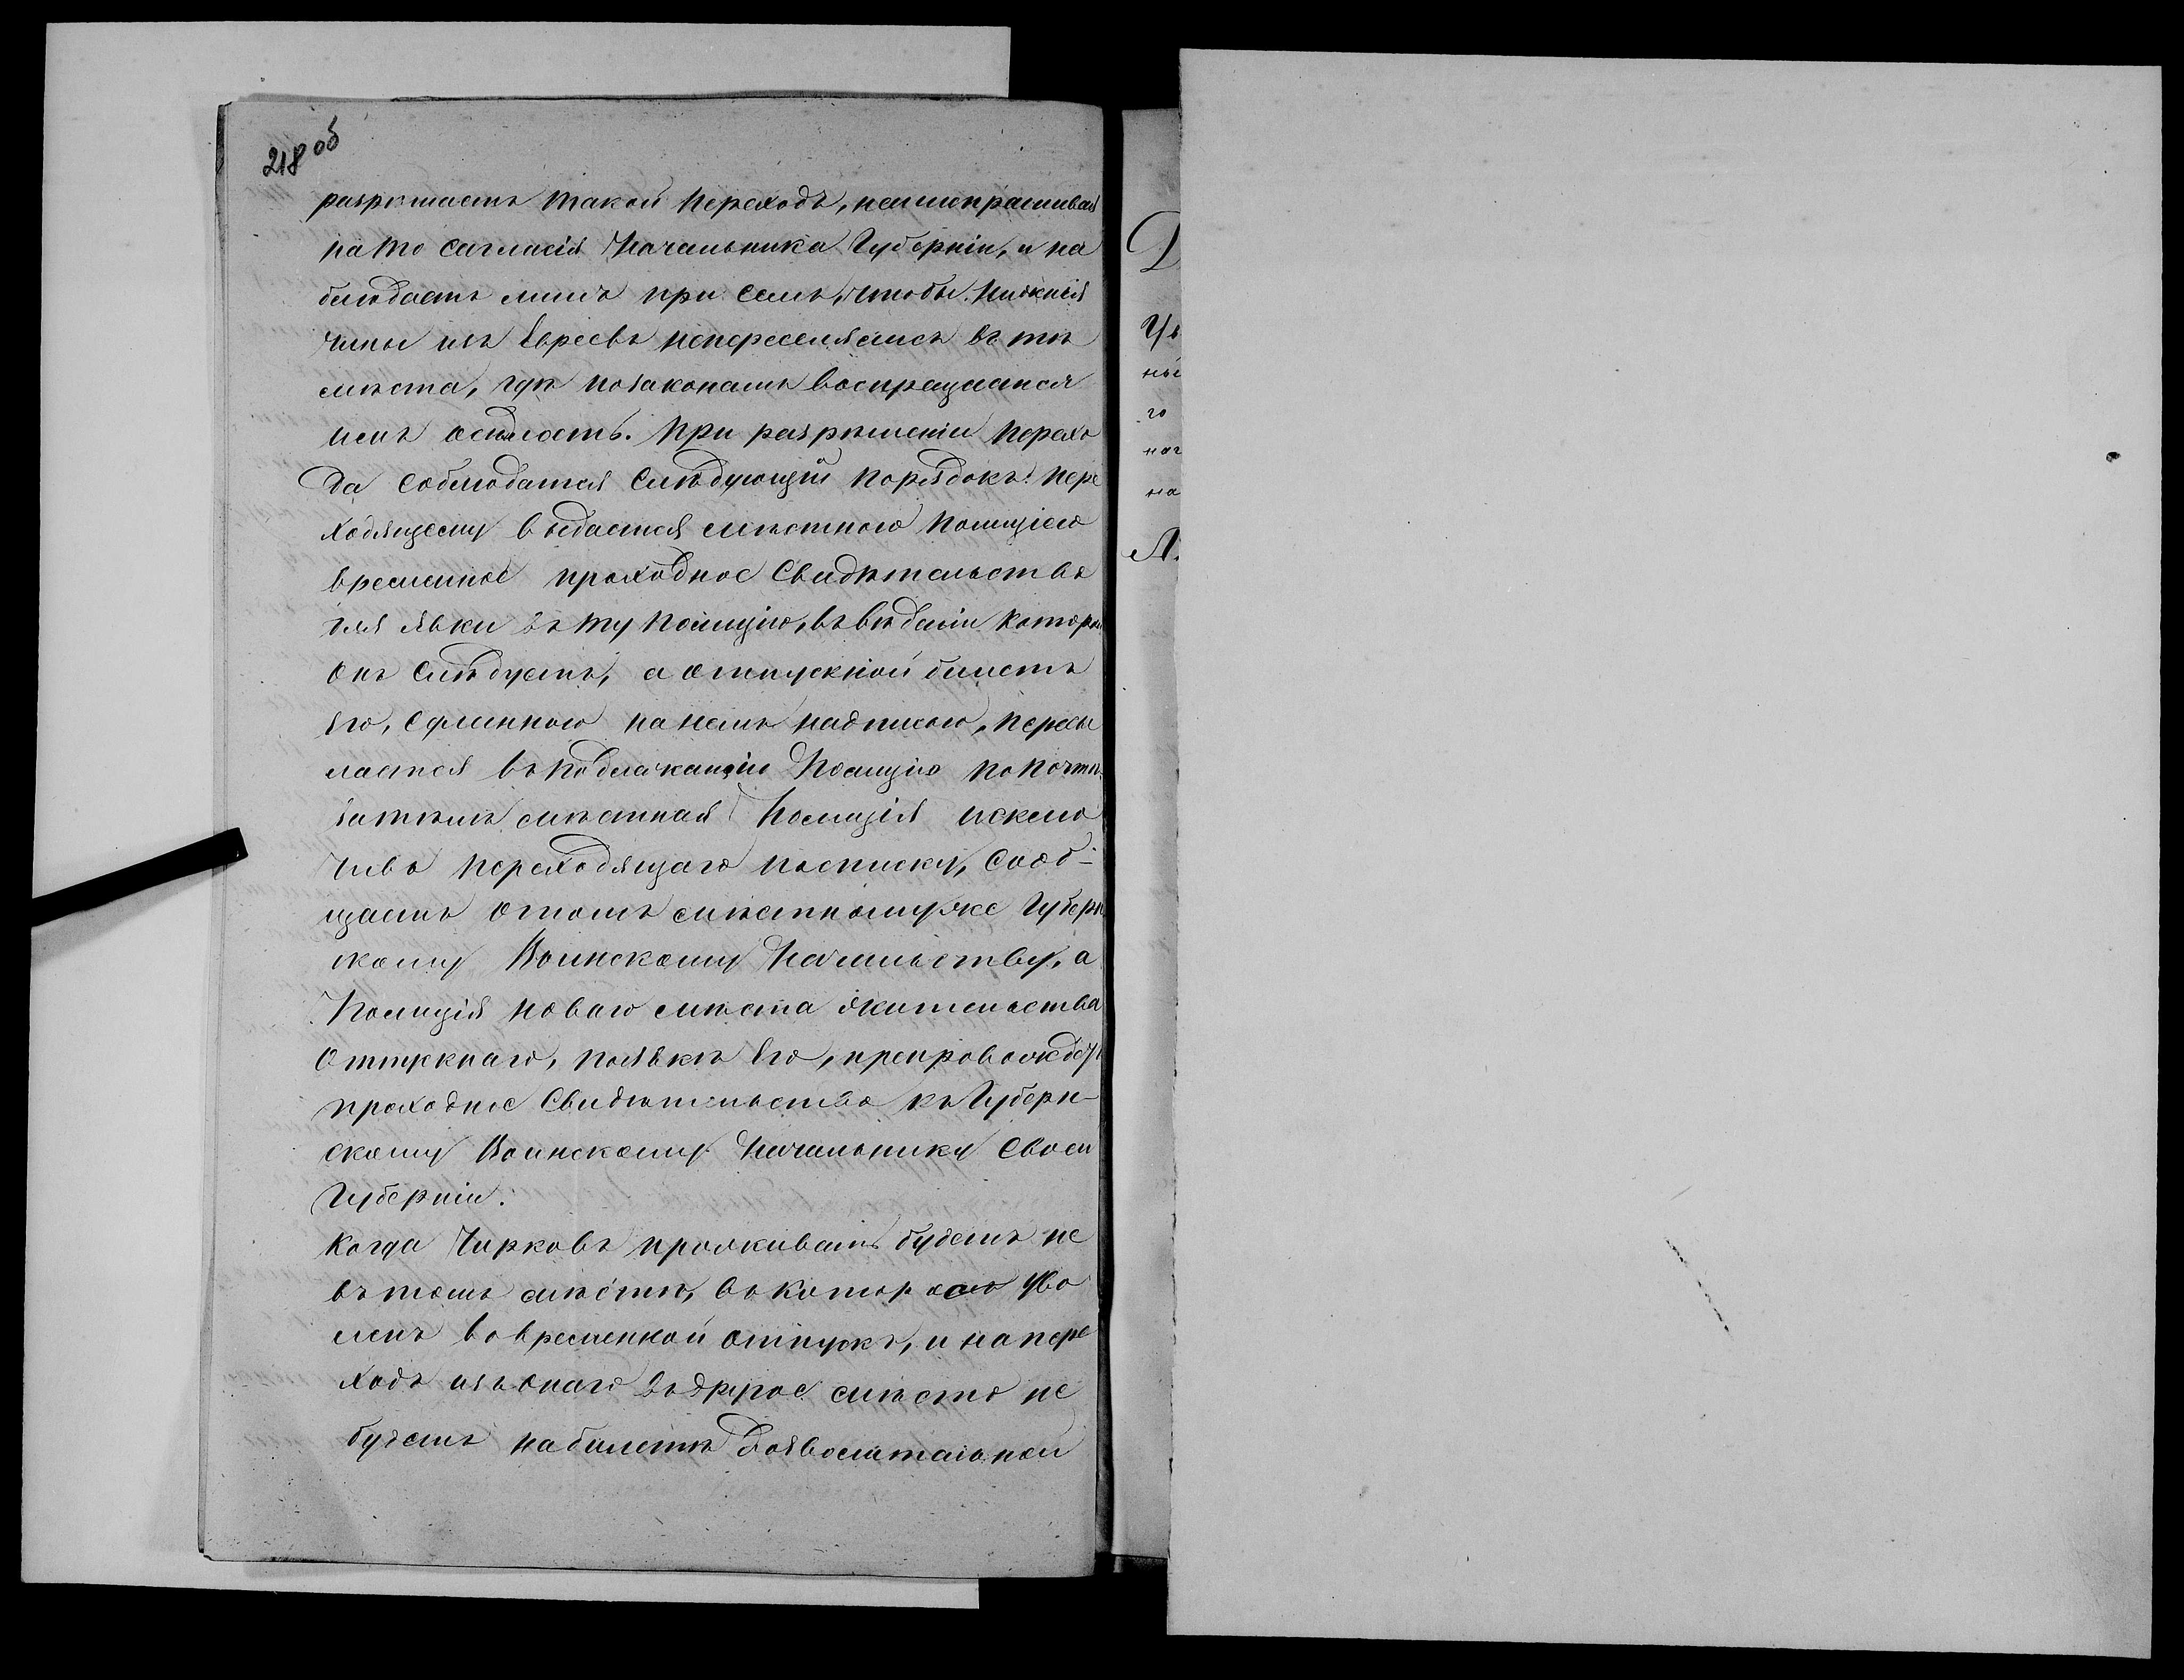 218 об
разрѣшаетъ такой переходъ, неиспрашивая
на то согласія Начальника Губерніи, и на
блюдаетъ лишь при семъ, чтобы нижніе
чины изъ Евреевъ непереселялись въ тѣ
мѣста, гдѣ позаконамъ воспрещается
имъ осѣдлость. При разрѣшеніи перехо
да соблюдается слѣдующій порядокъ: пере
ходящему выдается мѣстною полиціею
временное проходное свидѣтельство
для явки въ ту полицію, въ вѣденіи которой
онъ слѣдуетъ, а отпускной билетъ
его, сдѣланною на немъ надписью, пересы
лается въ подлежащую полицію по почтѣ.
затѣмъ мѣстная Полиція исклю
чивъ переходящаго изъ списку, сооб-
щаетъ о томъ мѣстному же Губерн
скому Воинскому Начальству, а
Полиція новаго мѣста жительства
отпускнаго, появкѣ его, препровождаетъ
проходное свидѣтельство къ Губерн-
скому Воинскому Начальнику своей
Губерніи.
Когда Чирковъ проживать будетъ не
въ томъ мѣстѣ, въ которое уво
ленъ во временной отпускъ, и на пере
ходъ изъ онаго въ другое мѣсто не
будетъ на билетѣ дозволительной
го
на